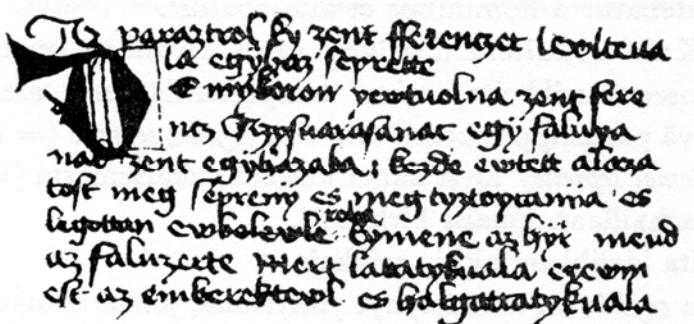 Eg paraztrol ky zent fferenczet lewlteua
la egyhaz seprette
DE mykoron yewtuolna zent fere
ncz varasanac egy faluya
nac zent egyhazaba ; kezde ewtett alaza
tost meg sepreny es meg tyztoytanÿa · es
legottan ewbelewle rola kymene az hyr mend
az faluzerte Mert latatykuala
est az emberektewl es halgattatykuala